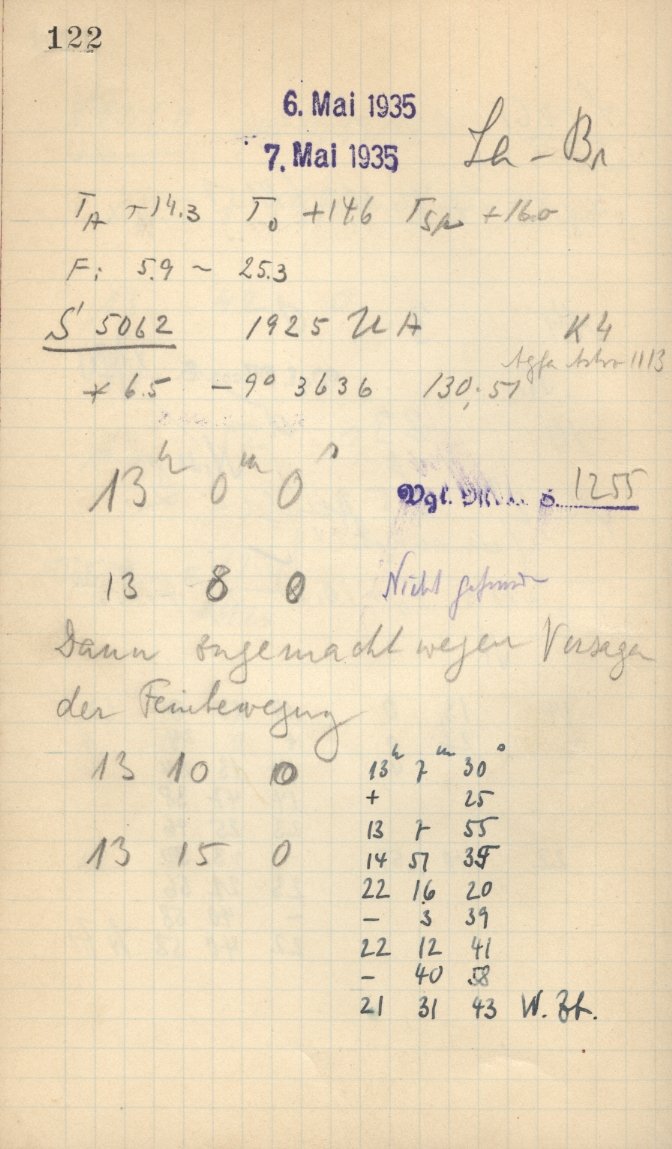 122
6. Mai 1935
7. Mai 1935
La - Br
T_A +14.3 T_0 +14.6 T_Sp +16.0
F: 5.9 ~ 25.3
S 5062 1925 UA K4
Agfa Astro 1113
* 6.5 -9° 3636 130; 51
13h 0m 0s
Vgl. S. 1255
13 8 0
Nicht gefunden
Dann zugemacht wegen Versagen
der Feinbewegung
13 10 0
13 15 0
13h 7m 30s
+ 25
13 7 55
14 51 35
22 16 20
- 3 39
22 12 41
- 40 58
21 31 43 W. Zt.